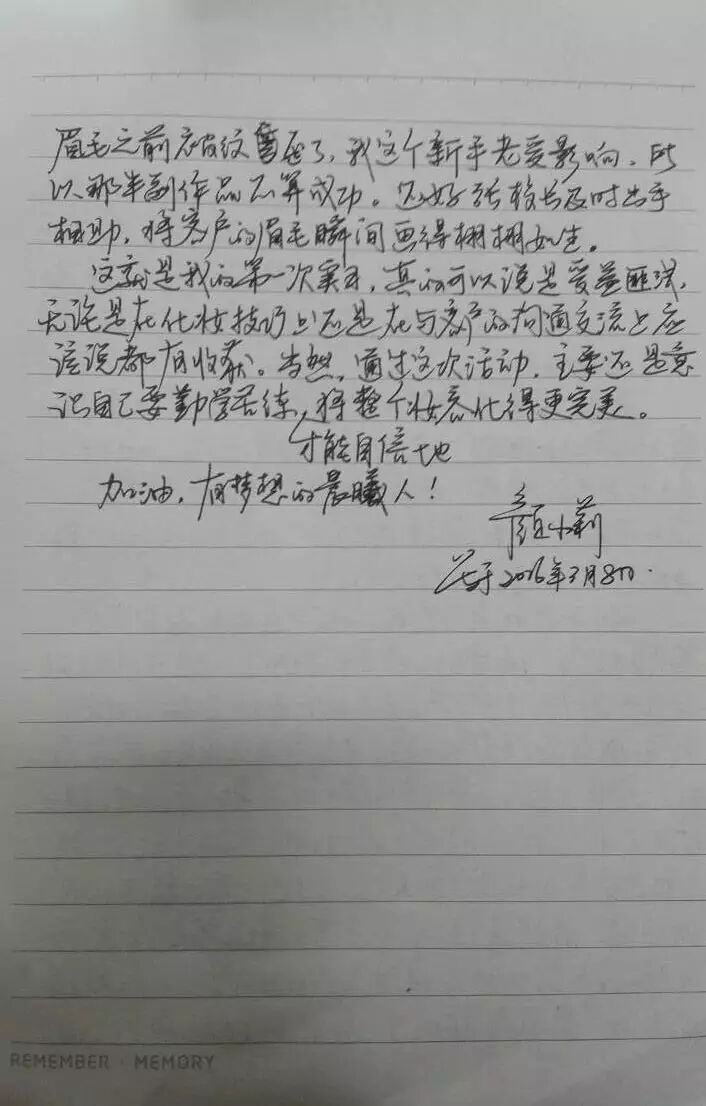 眉毛之前被纹坏了,我这个新手老受影响,所
以那半副作品不算成功。还好张校长及时出手
相助,将客户的眉毛瞬间画得栩栩如生。
这就是我的第一次实习,真的可以说是受益匪浅,
无论是在化妆技巧上还是在与客户的沟通交流上应
该说都有收获。当然,通过这次活动,主要还是意
识自己要勤学苦练,将整个妆容化得更完美。
才能自信地
加油,有梦想的晨曦人!
颜小莉
于2016年3月8日.
REMEMBER · MEMORY